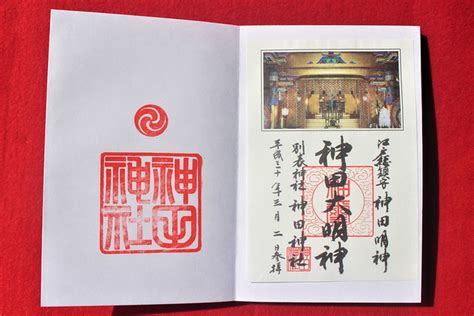 神田
神社
江戸総鎮守 神田明神
神田大明神
別表神社 神田神社
平成三十年三月二日参拝